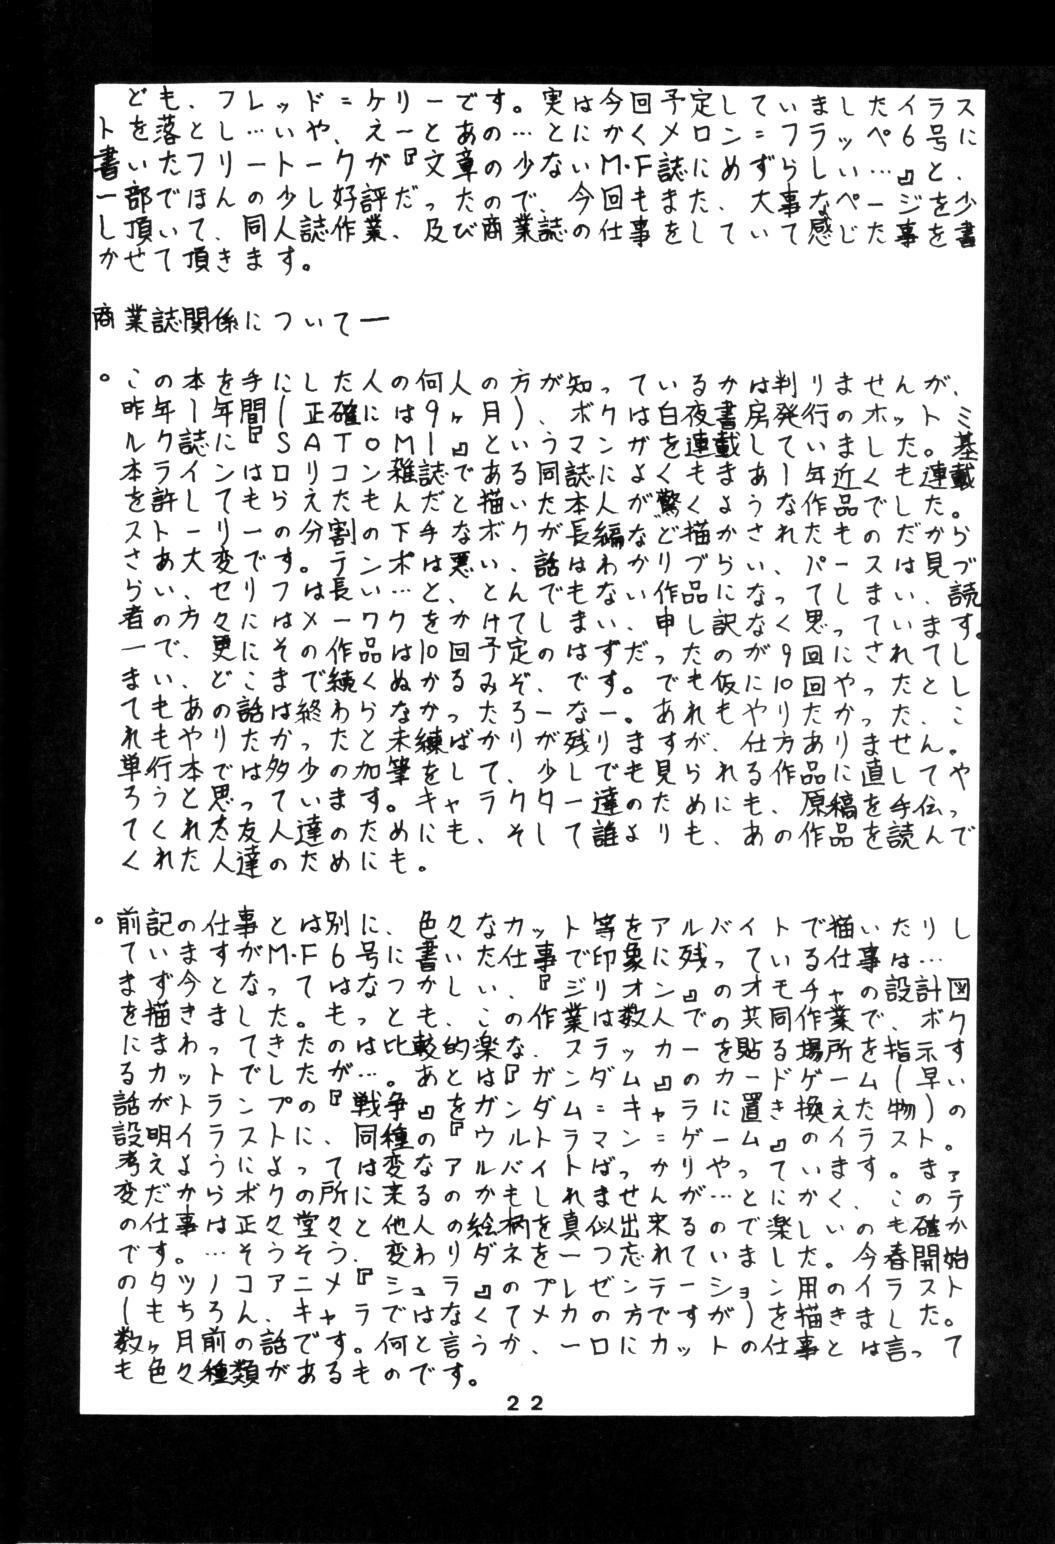 ども、フレッド=ケリーです。実は今回予定していましたイラス
トを落とし…いや、えーとあの…とにかくメロン=フラッペ6号に
書いたフリートークが『文章の少ないM・F誌にめずらしい…』と、
一部でほんの少し好評だったので、今回もまた、大事なページを少
し頂いて、同人誌作業、及び商業誌の仕事をしていて感じた事を書
かせて頂きます。
商業誌関係についてー
。この本を手にした人の何人の方が知っているかは判りませんが、
昨年一年間(正確には9ヶ月)、ボクは白夜書房発行のホット・ミ
ルク誌に『SATOMI』というマンガを連載していました。基
本ラインはロリコン雑誌である同誌によくもまあ一年近くも連載
を許してもらえたもんだと描いた本人が驚くような作品でした。
ストーリーの分割の下手なボクが長編など描かされたものだから
さあ大変です。テンポは悪い、話はわかりづらい、パースは見づ
らい、セリフは長い…と、とんでもない作品になってしまい、読
者の方々にはメーワクをかけてしまい、申し訳なく思っています。
一で、更にその作品は10回予定のはずだったのが9回にされてし
まい、どこまで続くぬかるみぞ、です。でも仮に10回やったとし
てもあの話は終わらなかったろーなー。あれもやりたかった、こ
れもやりたかったと未練ばかりが残りますが、仕方ありません。
単行本では多少の加筆をして、少しでも見られる作品に直してや
ろうと思っています。キャラクター達のためにも、原稿を手伝っ
てくれた友人達のためにも、そして誰よりも、あの作品を読んで
くれた人達のためにも。
。前記の仕事とは別に、色々なカット等をアルバイトで描いたりし
ていますがM・F6号に書いた仕事で印象に残っている仕事は…
まず今となってはなつかしい、『ジリオン』のオモチャの設計図
を描きました。もっとも、この作業は数人での共同作業で、ボク
にまわってきたのは比較的楽な、ステッカーを貼る場所を指示す
るカットでしたが…。あとは『ガンダム』のカードゲーム(早い
話がトランプの『戦争』をガンダム=キャラに置き換えた物)の
設明イラストに、同種の『ウルトラマン=ゲーム』のイラスト。
考えようによっては変なアルバイトばかりやっています。まァ
変だからボクの所に来るのかもしれませんが…とにかく、このテ
の仕事は正々堂々と他人の絵柄を真似出来るので楽しいのも確か
です。…そうそう、変わりダネを一つ忘れていました。今春開始
のタツノコアニメ『シュラ』のプレゼンテーション用のイラスト
(もちろん、キャラではなくてメカの方ですが)を描きました。
数ヶ月前の話です。何と言うか、一口にカットの仕事とは言って
も色々種類があるものです。
22